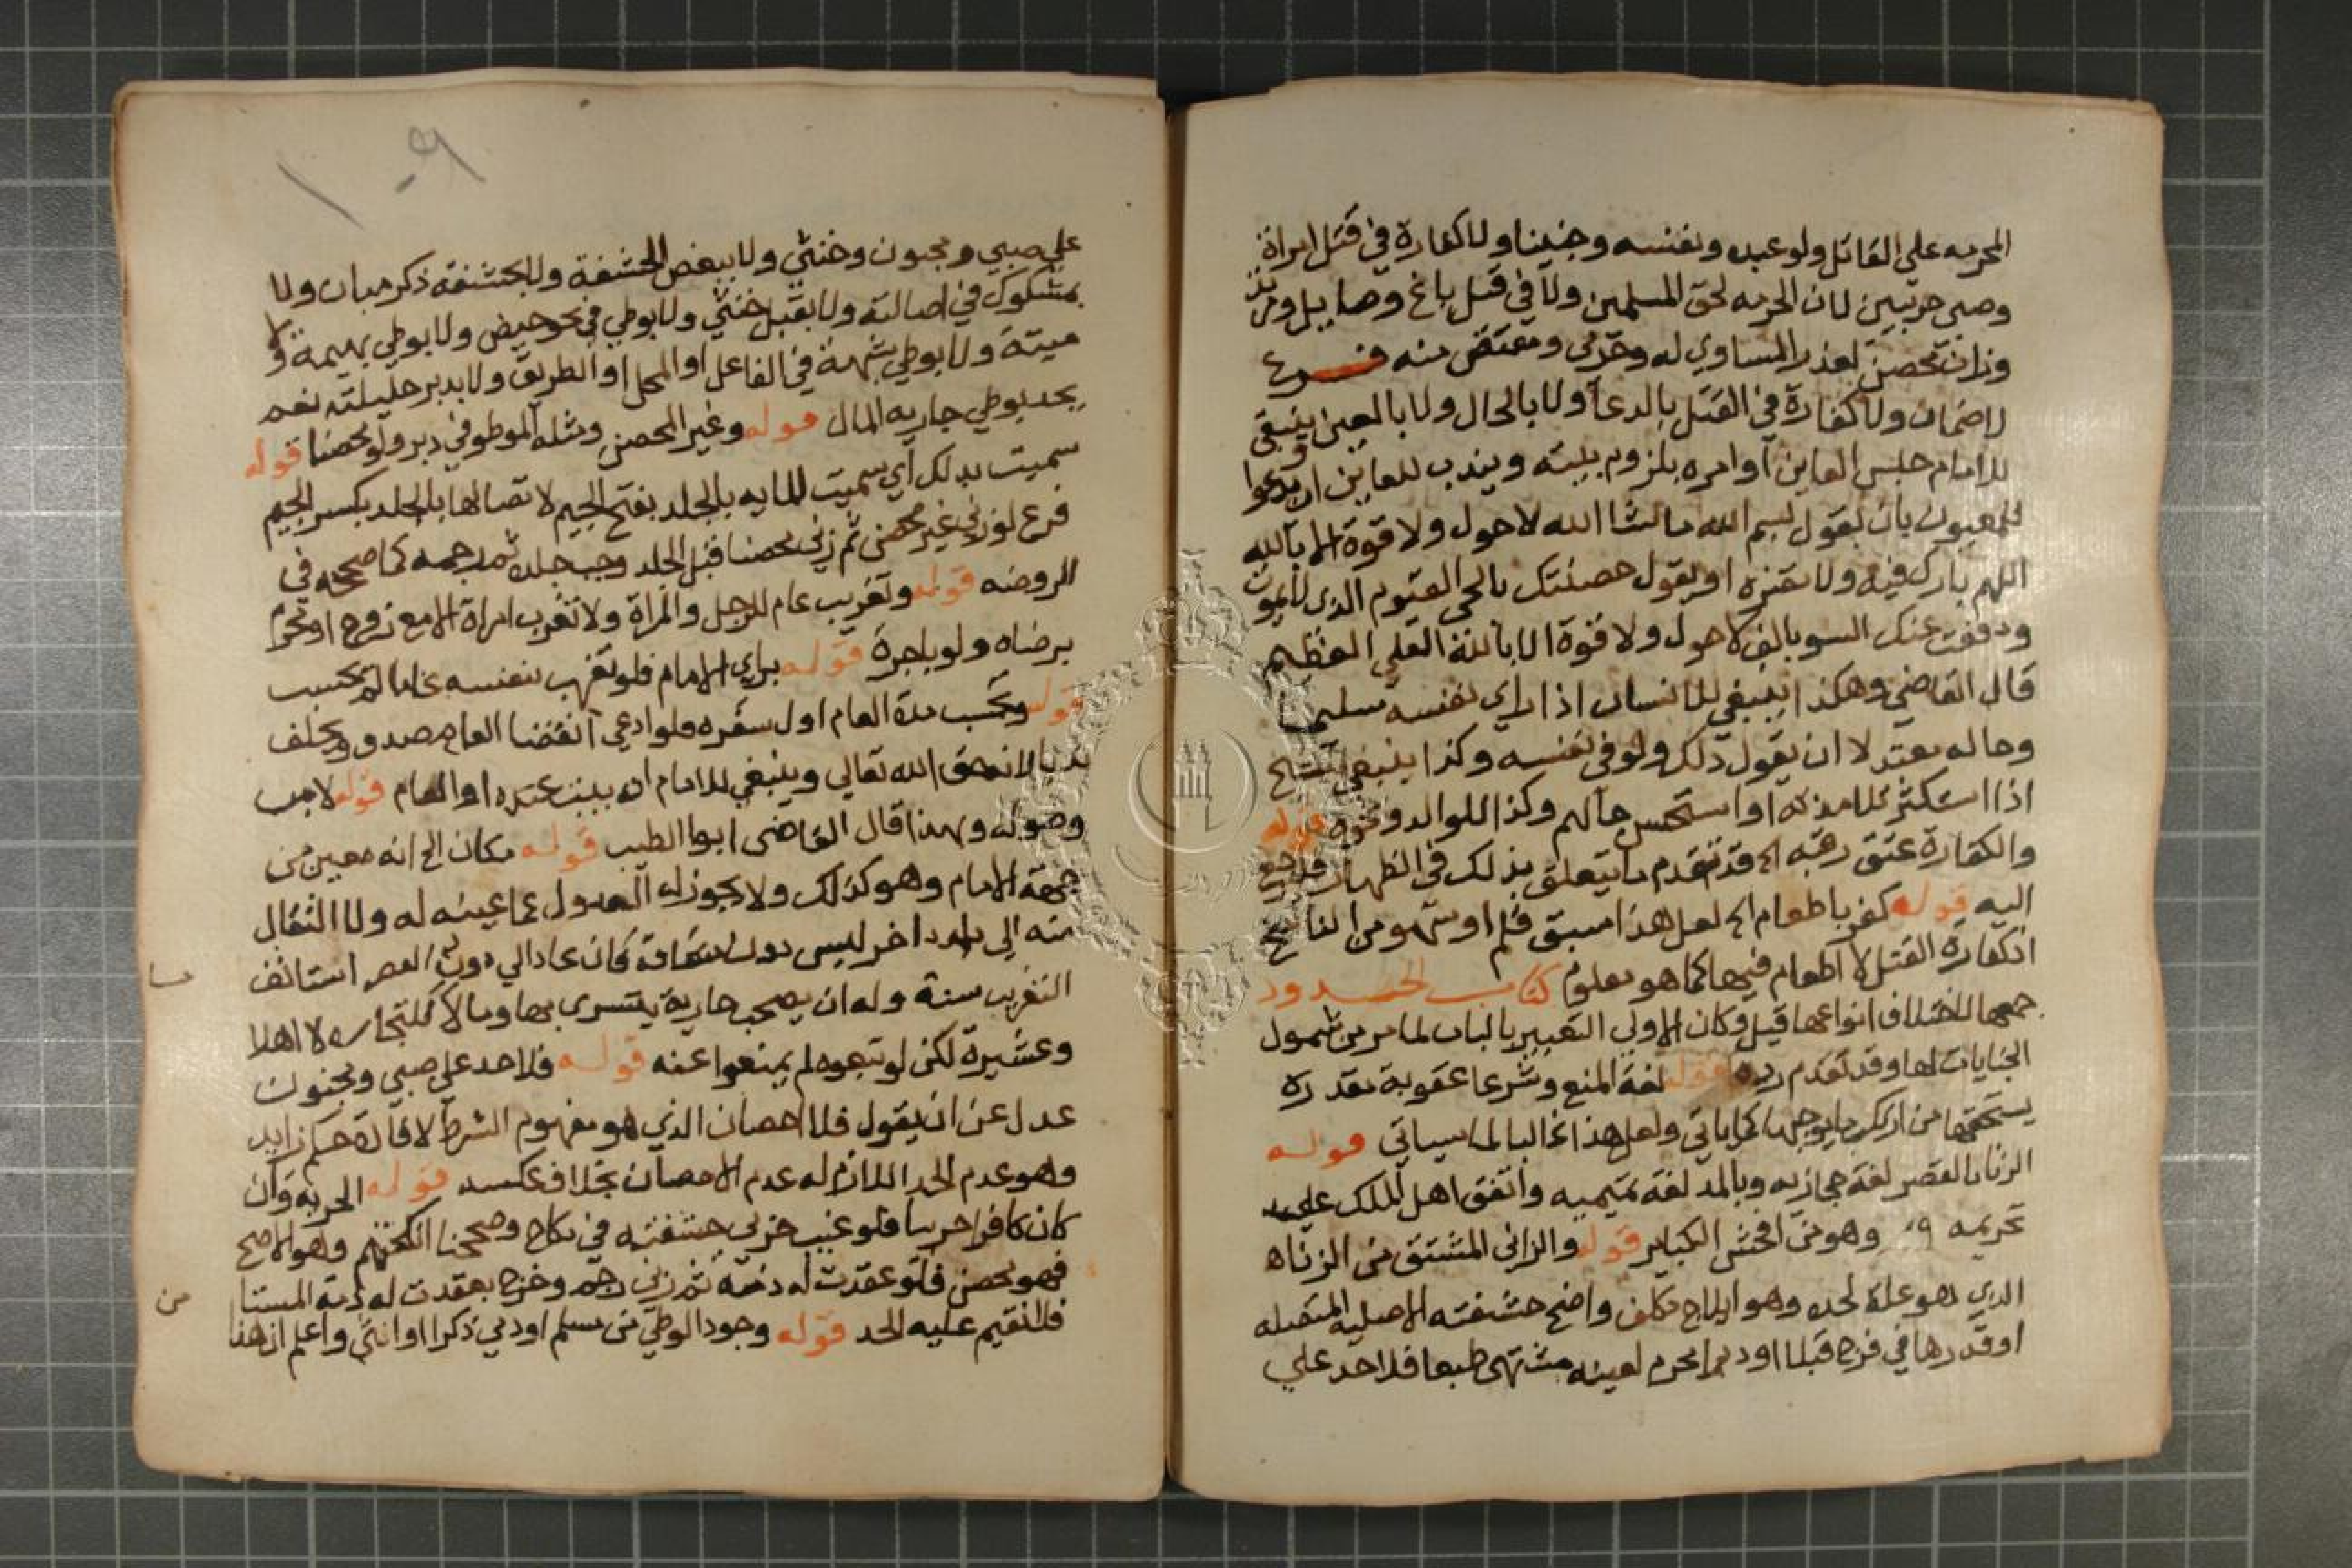 الحربه على القاتل ولو عبده ونفسه وجنينا ولا كفارة في قتل امراة
وصبي حربيين لان الحرمه لحق المسلمين ولا في قتل باغ وصايل ومرتد
وزان محصن لغير المساوي له وحربي ومقتض منه فرع
لاضمان ولا كفارة في القتل بالدعا ولا بالحال ولا بالعين وينبغي
للامام حبس العاين او امره بلزوم بيته ويندب للعاين ان يدعوا
للمعيون بان يقول بسم الله ما شا الله لا حول ولا قوة الا بالله
اللهم بارك فيه ولا تضره او يقول حصنتك بالحي القيوم الذي لا يموت
ودفعت عنك السو بالف لا حول ولا قوة الا بالله العلي العظيم
قال القاضي وهكذا ينبغي للانسان اذا راي نفسه سليما
وحاله معتدلا ان يقول ذلك ولو في نفسه وكذا ينبغي للشيخ
اذا استكثر تلامذته او استحسن حالهم وكذا للوالد ونحوه قوله
والكفارة عتق رقبه الخ قد تقدم ما يتعلق بذلك في الظهار فراجع
اليه قوله كفر باطعام الخ لعل هذا سبق قلم او سهو من الناسخ
اذ كفارة القتل لا اطعام فيها كما هو معلوم كتاب الحدود
جمعها لاختلاف انواعها قيل وكان الاولي التعبير بالباب لما مر من شمول
الجنايات لها وقد تقدم رده قوله لغة المنع وشرعا عقوبة مقدرة
يستحقها من ارتكب ما يوجبها كما ياتي ولعل هذا غالبا لما سياتي قوله
الزنا بالقصر لغة حجازيه وبالمد لغة تميميه واتفق اهل الملل علي
تحريمه وهو من افحش الكباير قوله والزاني المشتق من الزنا
الذي هو علة لحده وهو ايلاج مكلف واضح حشفته الاصليه المتصله
او قدرها في فرج قبلا او دبرا محرم لعينه مشتهى طبعا فلا حد علي
١٠٩
علي صبي ومجنون وخنثي ولا ببعض الحشفة ولا بحشفة ذكر مبان ولا
بمشكوك في اصالته ولا بقبل خنثي ولا بوطي في نحو حيض ولا بوطي بهيمة ولا
ميتة ولا بوطي بشبهة في الفاعل او المحل او الطريق ولا بدبر حليلته نعم
يحد بوطي جاريه المال قوله وغير المحصن ومثله الموطو في دبر ولو محصنا قوله
سميت بذلك اي سميت المايه بالجلد بفتح الجيم لاتصالها بالجلد بكسر الجيم
فرع لو زني غير محصن ثم زني محصنا قبل الجلد وجب جلده ثم رجمه كما صححه في
الروضه قوله وتغريب عام للرجل والمراة ولا تغرب امراة الا مع زوج او محرم
برضاه ولو باجرة قوله براي الامام فلو تغرب بنفسه عاما لم يحتسب
قوله ويحسب مدة العام اول سفره فلو ادعي انقضا العام صدق ويحلف
ندبا لانه حق الله تعالي وينبغي للامام ان يثبت عنده اول العام قوله لا من
وصوله وبهذا قال القاضي ابوا الطيب قوله مكان الخ انه معين من
جهة الامام وهو كذلك ولا يجوز له العدول عما عينه له ولا انتقال
منه الي بلد اخر ليس دون المسافة فان عاد الي دون القصر استانف
التغريب سنة وله ان يصحب جارية يتسري بها ومالا للتجارة لا اهلا
وعشيرة لكن لو تبعوه لم يمنعوا عنه قوله فلا حد علي صبي ومجنون
عدل عن ان يقول فلا احصان الذي هو مفهوم الشرط لافادة حكم زايد
وهو عدم الحد اللازم له عدم الاحصان بخلاف عكسه قوله الحريه وان
كان كافرا حربيا فلو غيب حربي حشفته في نكاح وصححنا انكحتهم وهو الاصح
فهو محصن فلو عقدت له ذمة ثم زني رجم وخرج بعقدت له ذمة المستا
من
فلا نقيم عليه الحد قوله وجود الوطي من مسلم او ذمي ذكرا او انثي واعلم ان هذا